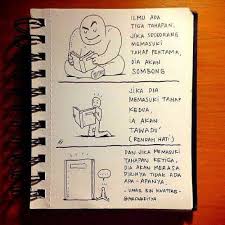 ILMU ADA
TIGA TAHAPAN,
JIKA SESEORANG
MEMASUKI
TAHAP PERTAMA,
DIA AKAN
SOMBONG
JIKA DIA
MEMASUKI TAHAP
KEDUA,
IA AKAN
TAWADU'
(RENDAH HATI)
DAN JIKA MEMASUKI
TAHAPAN KETIGA,
DIA AKAN MERASA
DIRINYA TIDAK ADA
APA-APANYA.
- UMAR BIN KHATTAB -